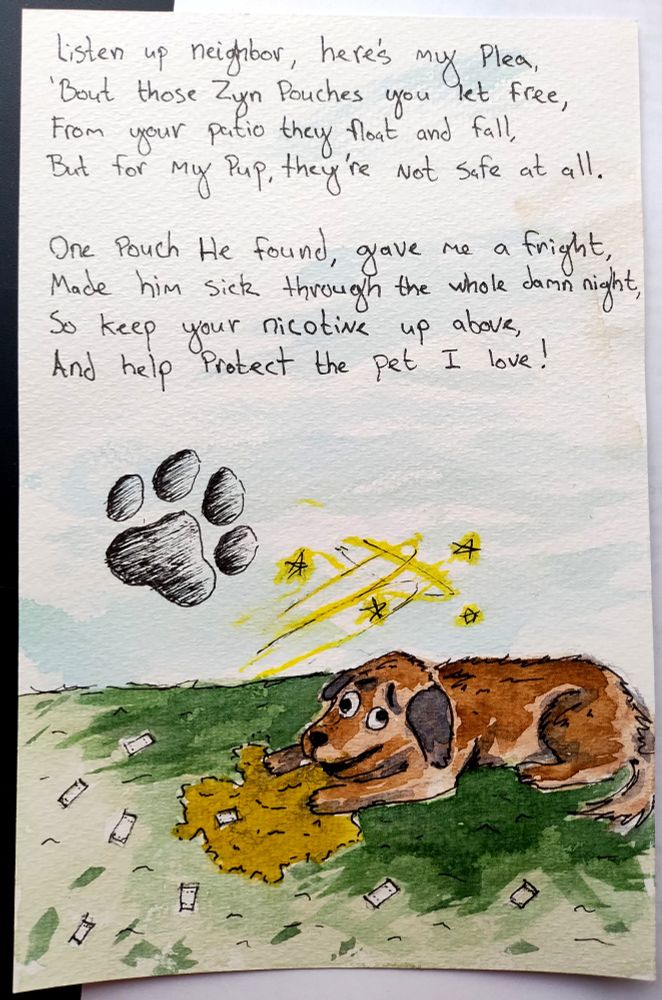 Listen up neighbor, here's my Plea,
'Bout those Zyn Pouches you let free,
From your patio they float and fall,
But for my Pup, they're Not safe at all.
One Pouch He found, gave me a fright,
Made him sick through the whole damn night,
So keep your nicotine up above,
And help Protect the pet I love!